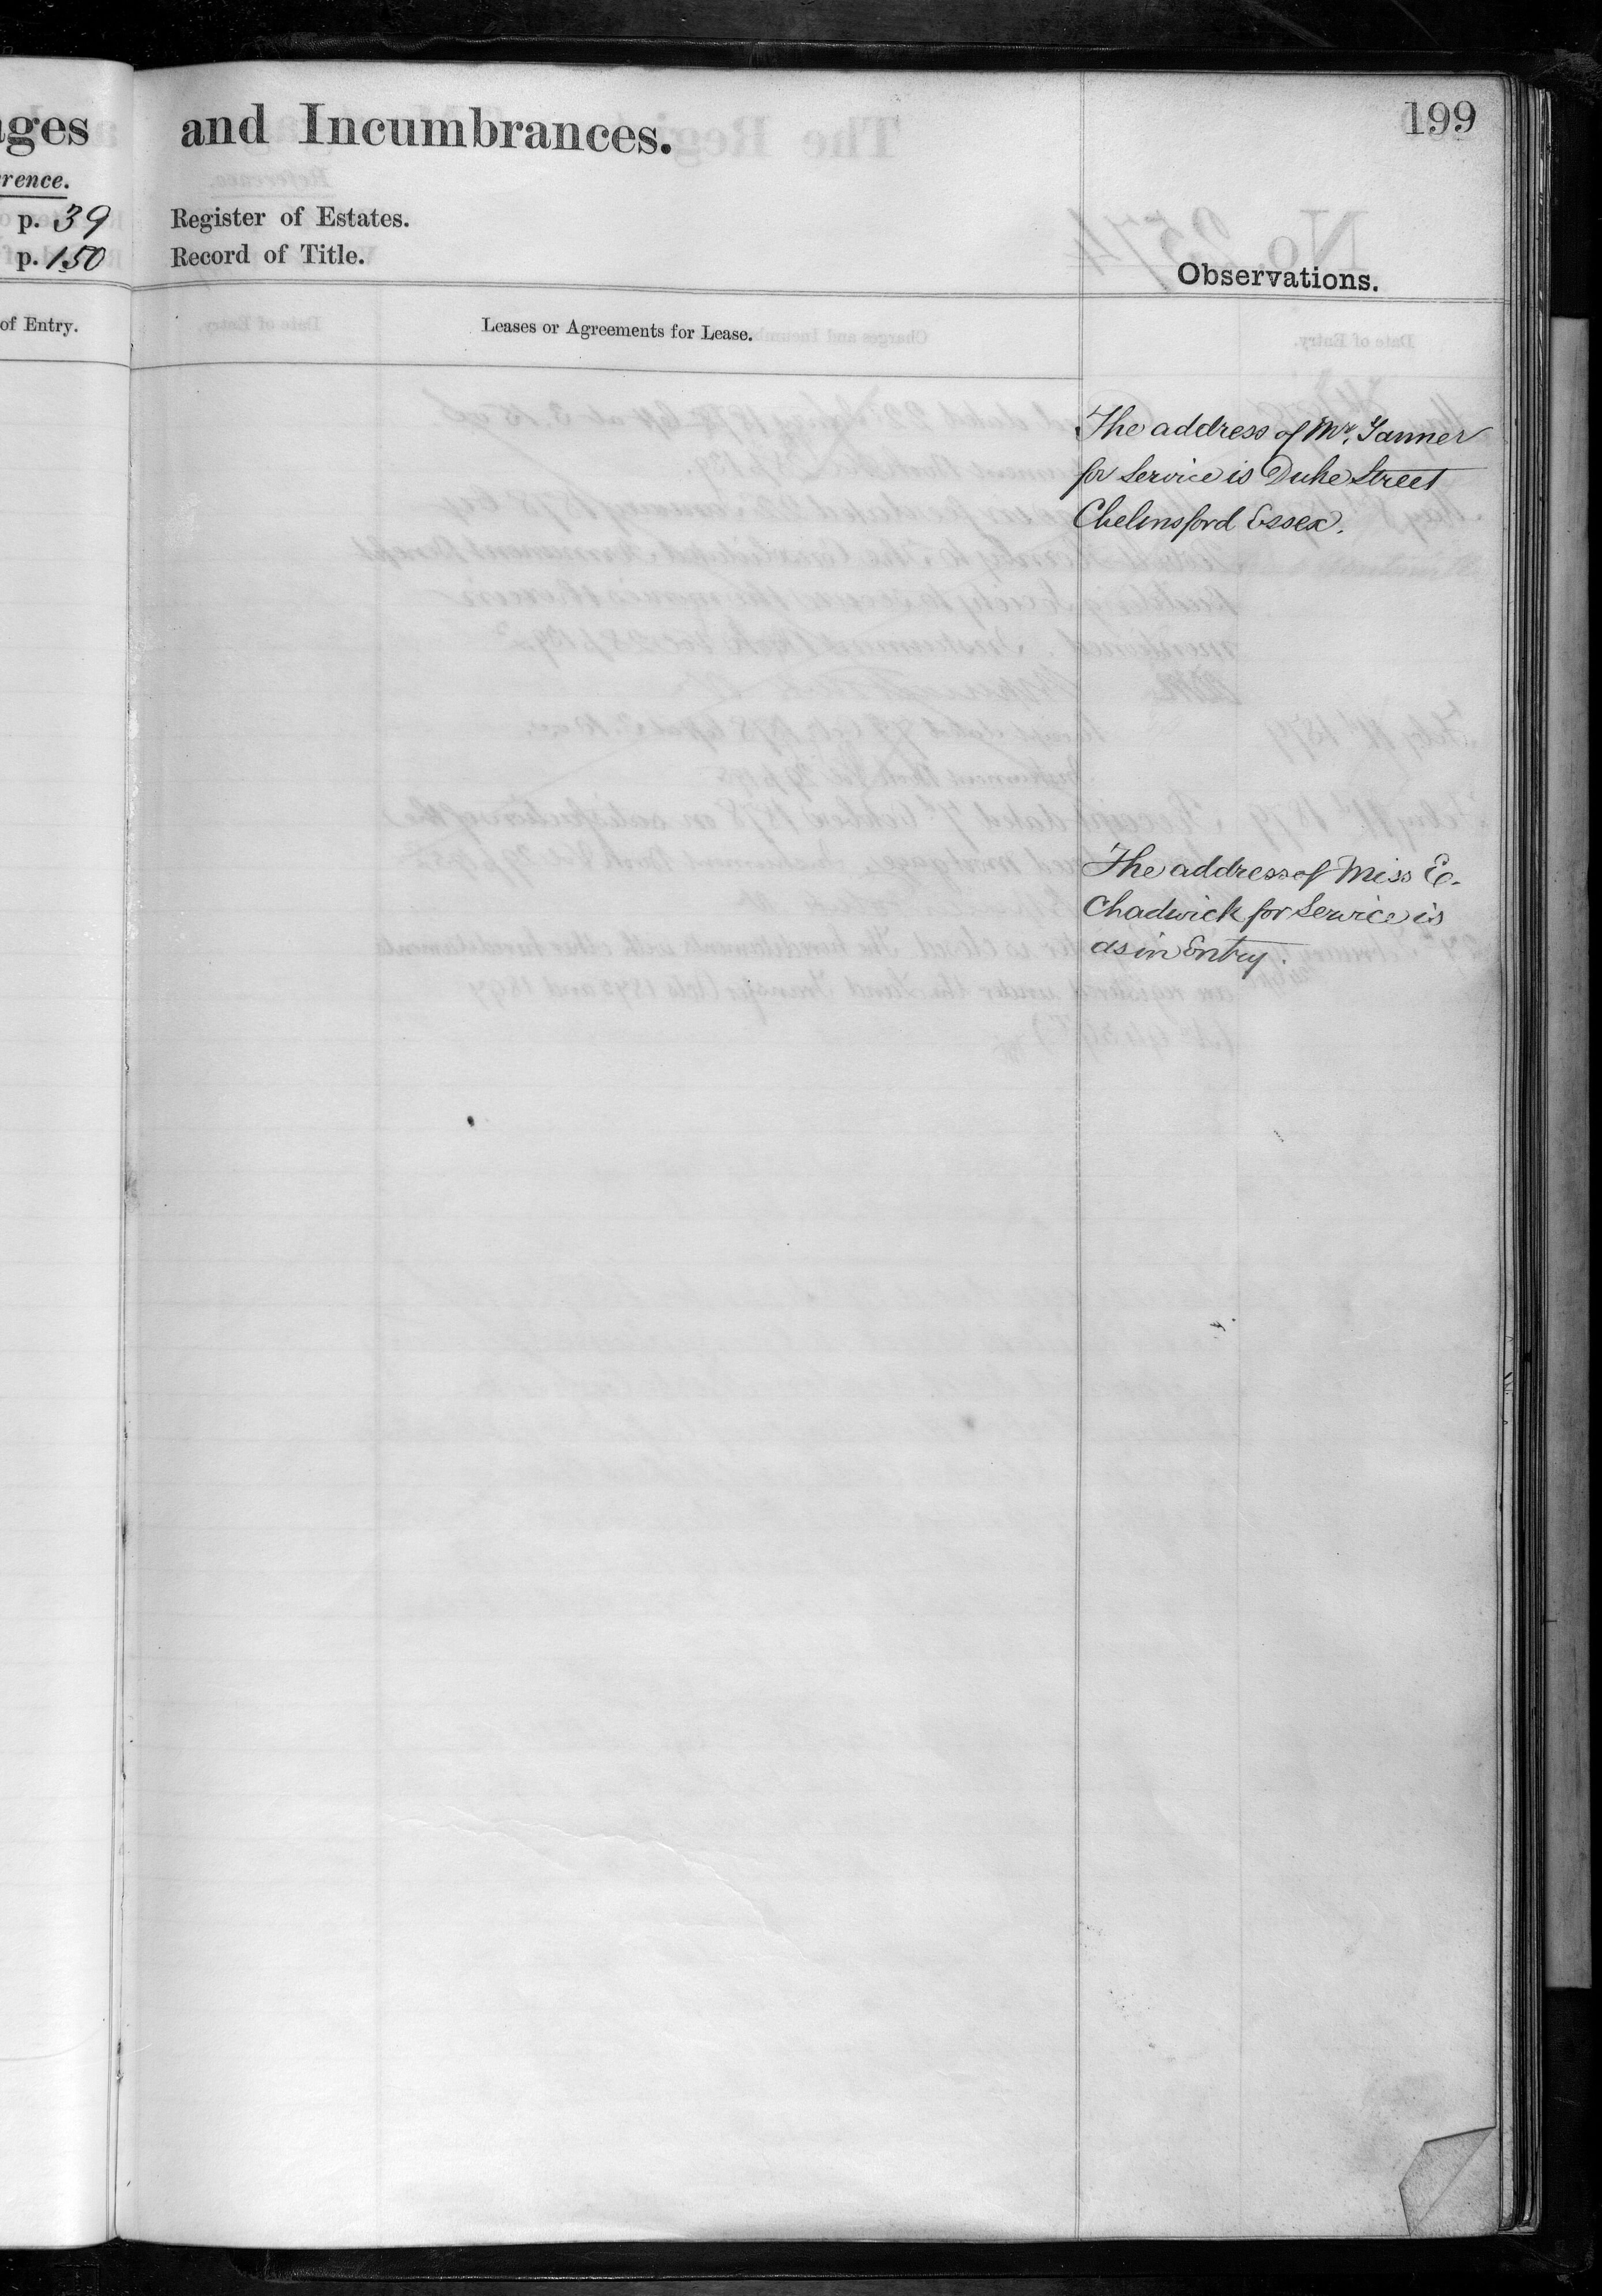 ages and Incumbrances.
199
rence.
p. 39 Register of Estates.
p. 150 Record of Title.
Observations.
of Entry.
Leases or Agreements for Lease.
The address of Mr. Tanner
for Service is Duke Street
Chelmsford Essex.
The address of Miss E.
Chadwick for Service is
as in Entry.